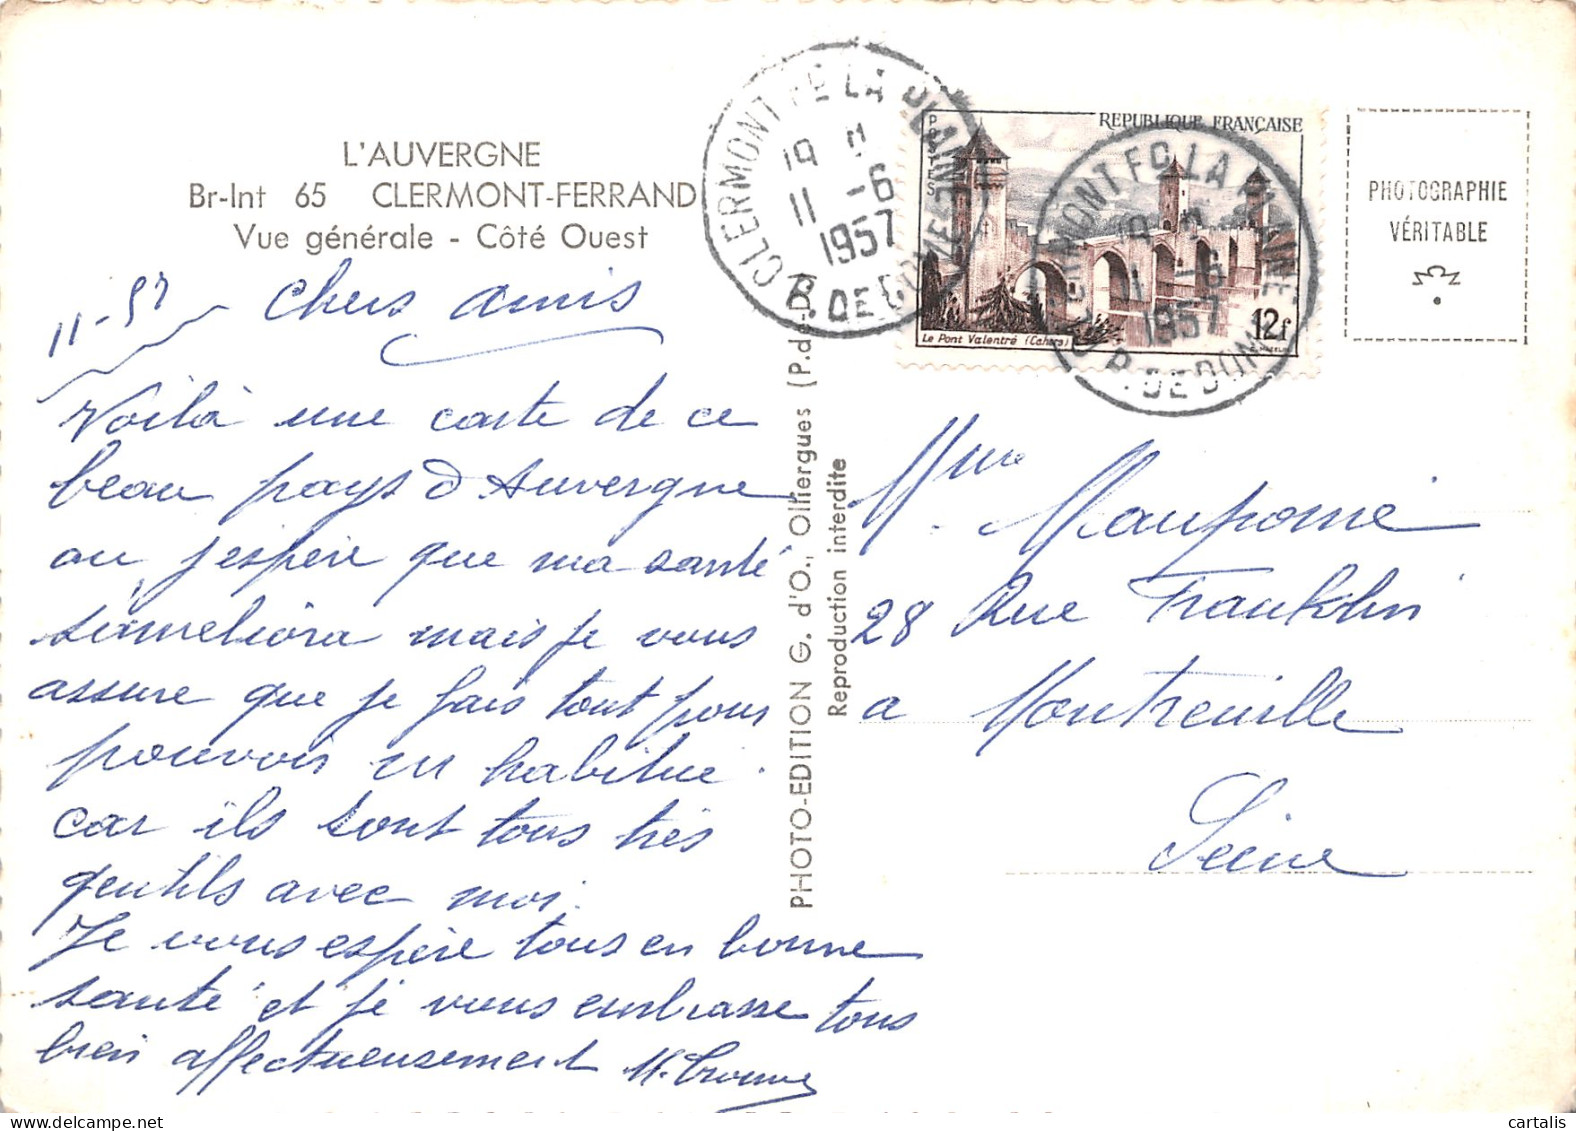 L'AUVERGNE
Br-Int 65 CLERMONT-FERRAND
Vue générale - Côté Ouest
CLERMONT FD LA PLAINE
19 H
11 -6
1957
P. DE DOME
POSTES
REPUBLIQUE FRANÇAISE
Le Pont Valentré (Cahors)
12f
CLERMONT FD LA PLAINE
19 H
11 -6
1957
P. DE DOME
PHOTOGRAPHIE
VÉRITABLE
11-57
Chers amis
Voilà une carte de ce
beau pays d'Auvergne
ou j'espère que ma santé
s'améliora mais je vous
assure que je fais tout pour
pouvoir m habitue.
car ils sont tous très
gentils avec moi.
Je vous espère tous en bonne
santé et je vous embrasse tous
bien affectueusement M.
PHOTO-EDITION G. d'O., Olliergues (P.-de-D.)
Reproduction interdite
Mme Maupomé
28 Rue Franklin
a Montreuille
Seine
cartalis